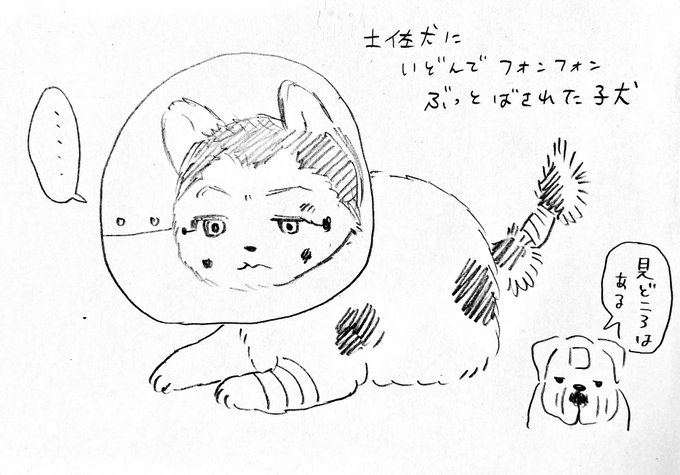 土佐犬に
いどんで フォンフォン
ぶっとばされた子犬
、、、、、
見どころは
ある